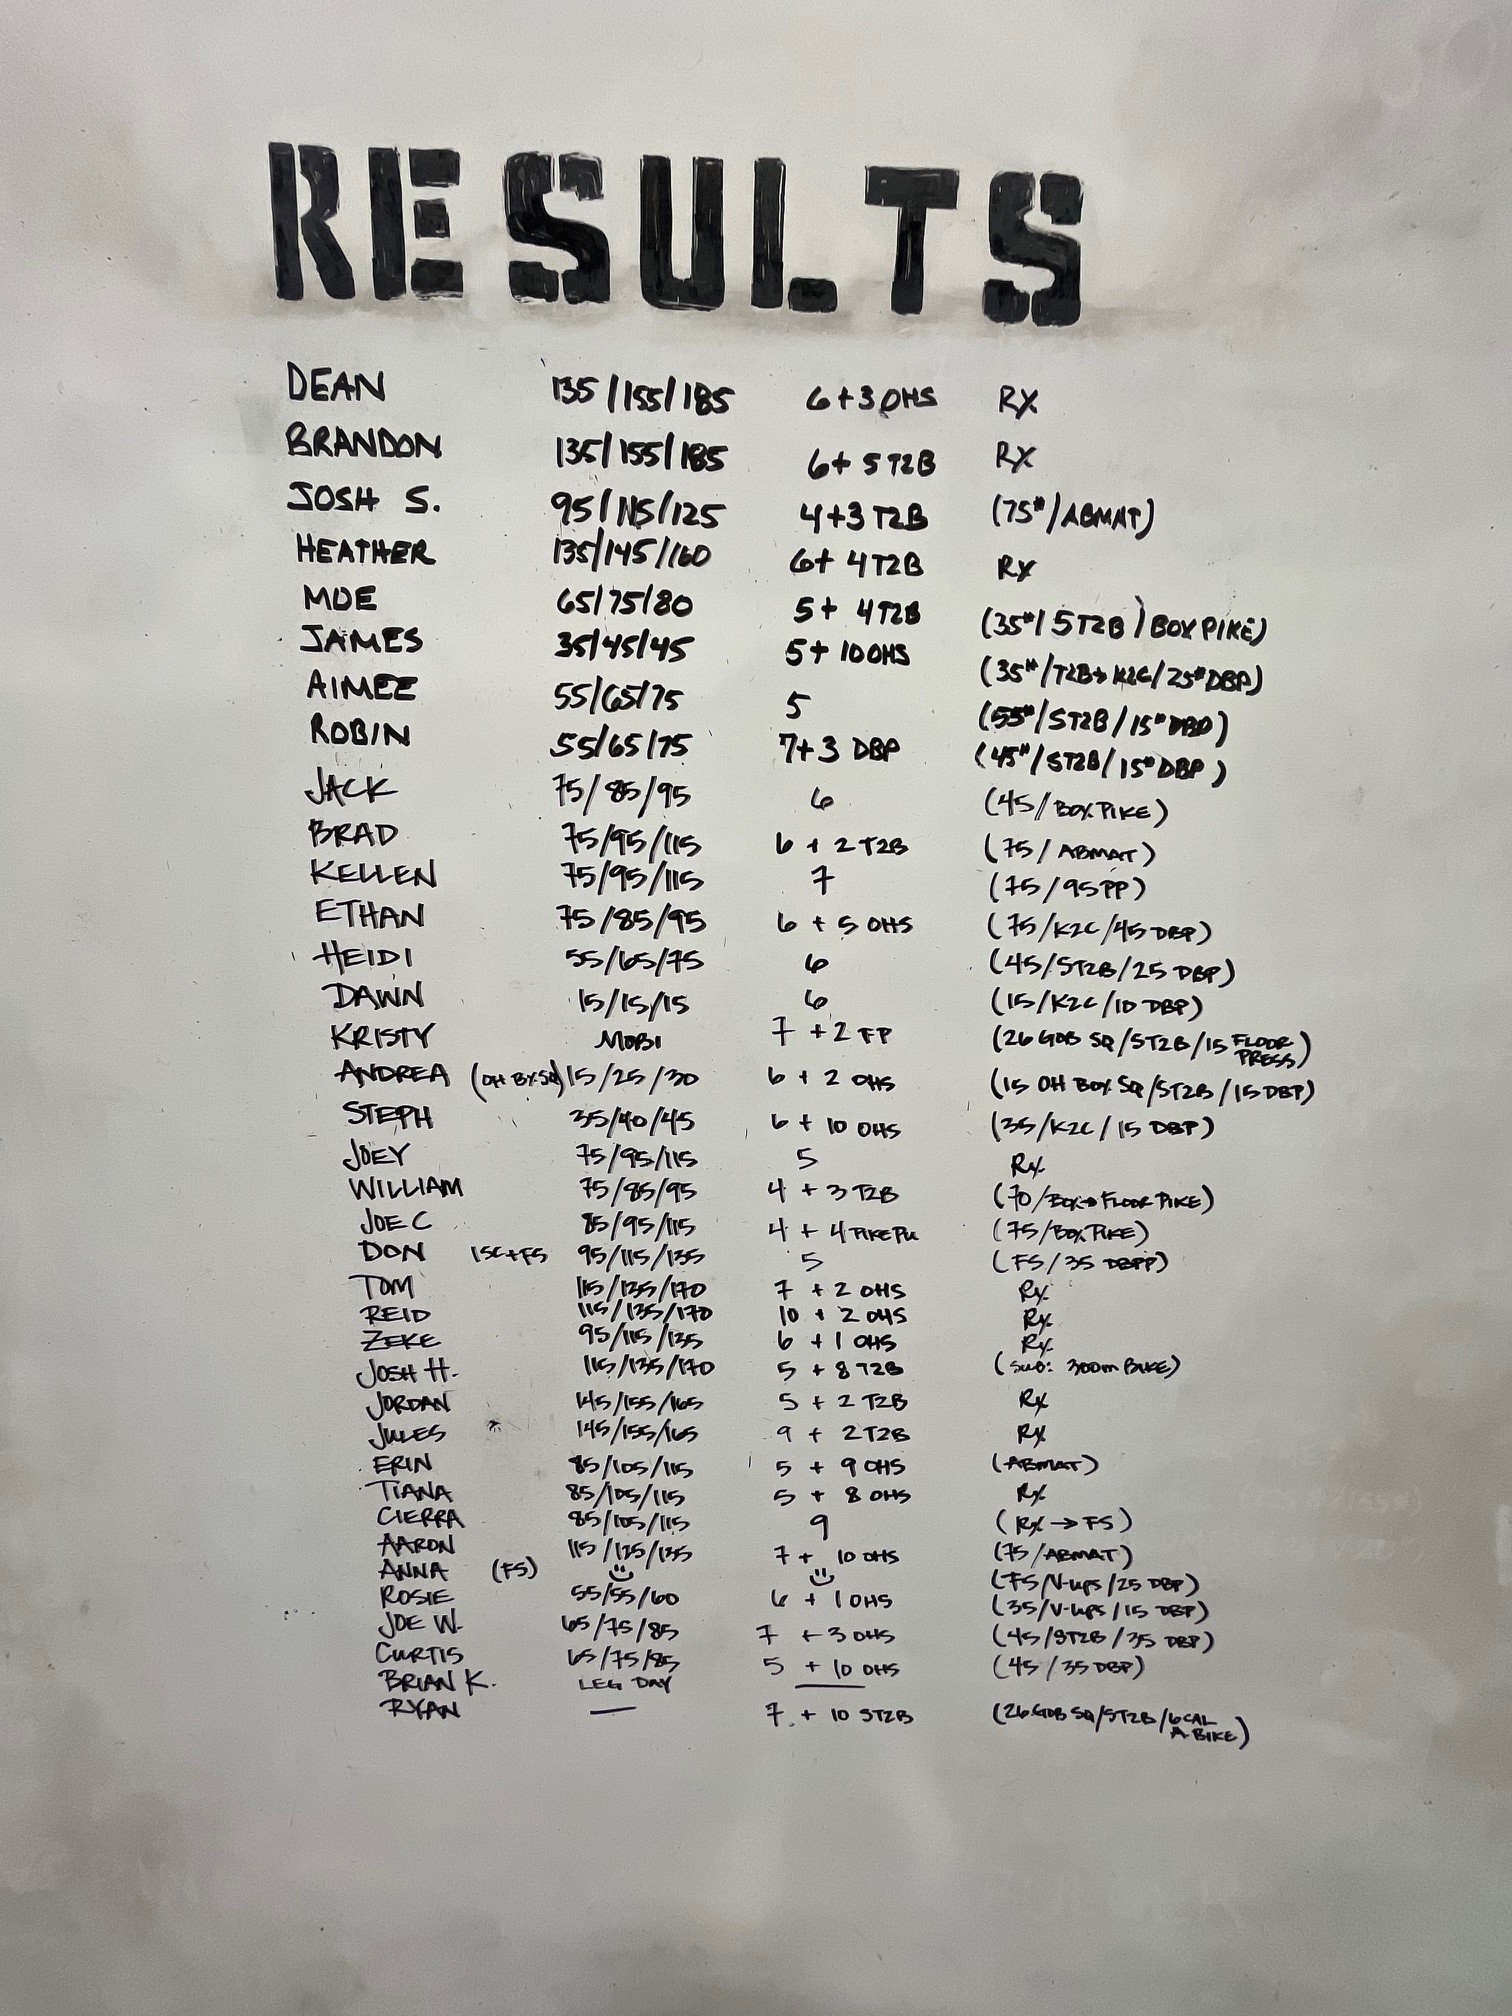 RESULTS
DEAN 135/155/185 6+3 OHS RX
BRANDON 135/155/185 6+ 5 T2B RX
JOSH S. 95/115/125 4+3 T2B (75#/ABMAT)
HEATHER 135/145/160 6+ 4 T2B RX
MOE 65/75/80 5+ 4T2B (35#/5T2B/BOX PIKE)
JAMES 35/45/45 5+ 10 OHS (35#/T2B→K2C/25# DBP)
AIMEE 55/65/75 5 (55#/ST2B/15# DBP)
ROBIN 55/65/75 7+3 DBP (45#/ST2B/15# DBP)
JACK 75/85/95 6 (45/BOX PIKE)
BRAD 75/95/115 6 + 2 T2B (75/ABMAT)
KELLEN 75/95/115 7 (75/95PP)
ETHAN 75/85/95 6 + 5 OHS (75/K2C/45 DBP)
HEIDI 55/65/75 6 (45/ST2B/25 DBP)
DAWN 15/15/15 6 (15/K2C/10 DBP)
KRISTY MOBI 7 +2 FP (26 GOB SQ/ST2B/15 FLOOR PRESS)
ANDREA (OH BX SQ) 15/25/30 6 + 2 OHS (15 OH BOX SQ/ST2B/15 DBP)
STEPH 35/40/45 6 + 10 OHS (35/K2C/15 DBP)
JOEY 75/95/115 5 Rx
WILLIAM 75/85/95 4 + 3 T2B (70/BOX→FLOOR PIKE)
JOE C 85/95/115 4 + 4 PIKE PU (75/BOX PIKE)
DON 1SC+FS 95/115/135 5 (FS/35 DBPP)
TOM 115/135/170 7 + 2 OHS Rx
REID 115/135/170 10 + 2 OHS Rx
ZEKE 95/115/135 6 + 1 OHS Rx
JOSH H. 115/135/170 5 + 8 T2B (SUB: 300m BIKE)
JORDAN 145/155/165 5 + 2 T2B Rx
JULES 145/155/165 9 + 2 T2B Rx
ERIN 85/105/115 5 + 9 OHS (ABMAT)
TIANA 85/105/115 5 + 8 OHS Rx
CIERRA 85/105/115 9 (Rx → FS)
AARON 115/125/135 7 + 10 OHS (75/ABMAT)
ANNA (FS) (75/V-ups/25 DBP)
ROSIE 55/55/60 6 + 1 OHS (35/V-ups/15 DBP)
JOE W. 65/75/85 7 + 3 OHS (45/ST2B/35 DBP)
CURTIS 65/75/85 5 + 10 OHS (45/35 DBP)
BRIAN K. LEG DAY —
RYAN — 7 + 10 ST2B (26 GOB SQ/ST2B/6 CAL A. BIKE)